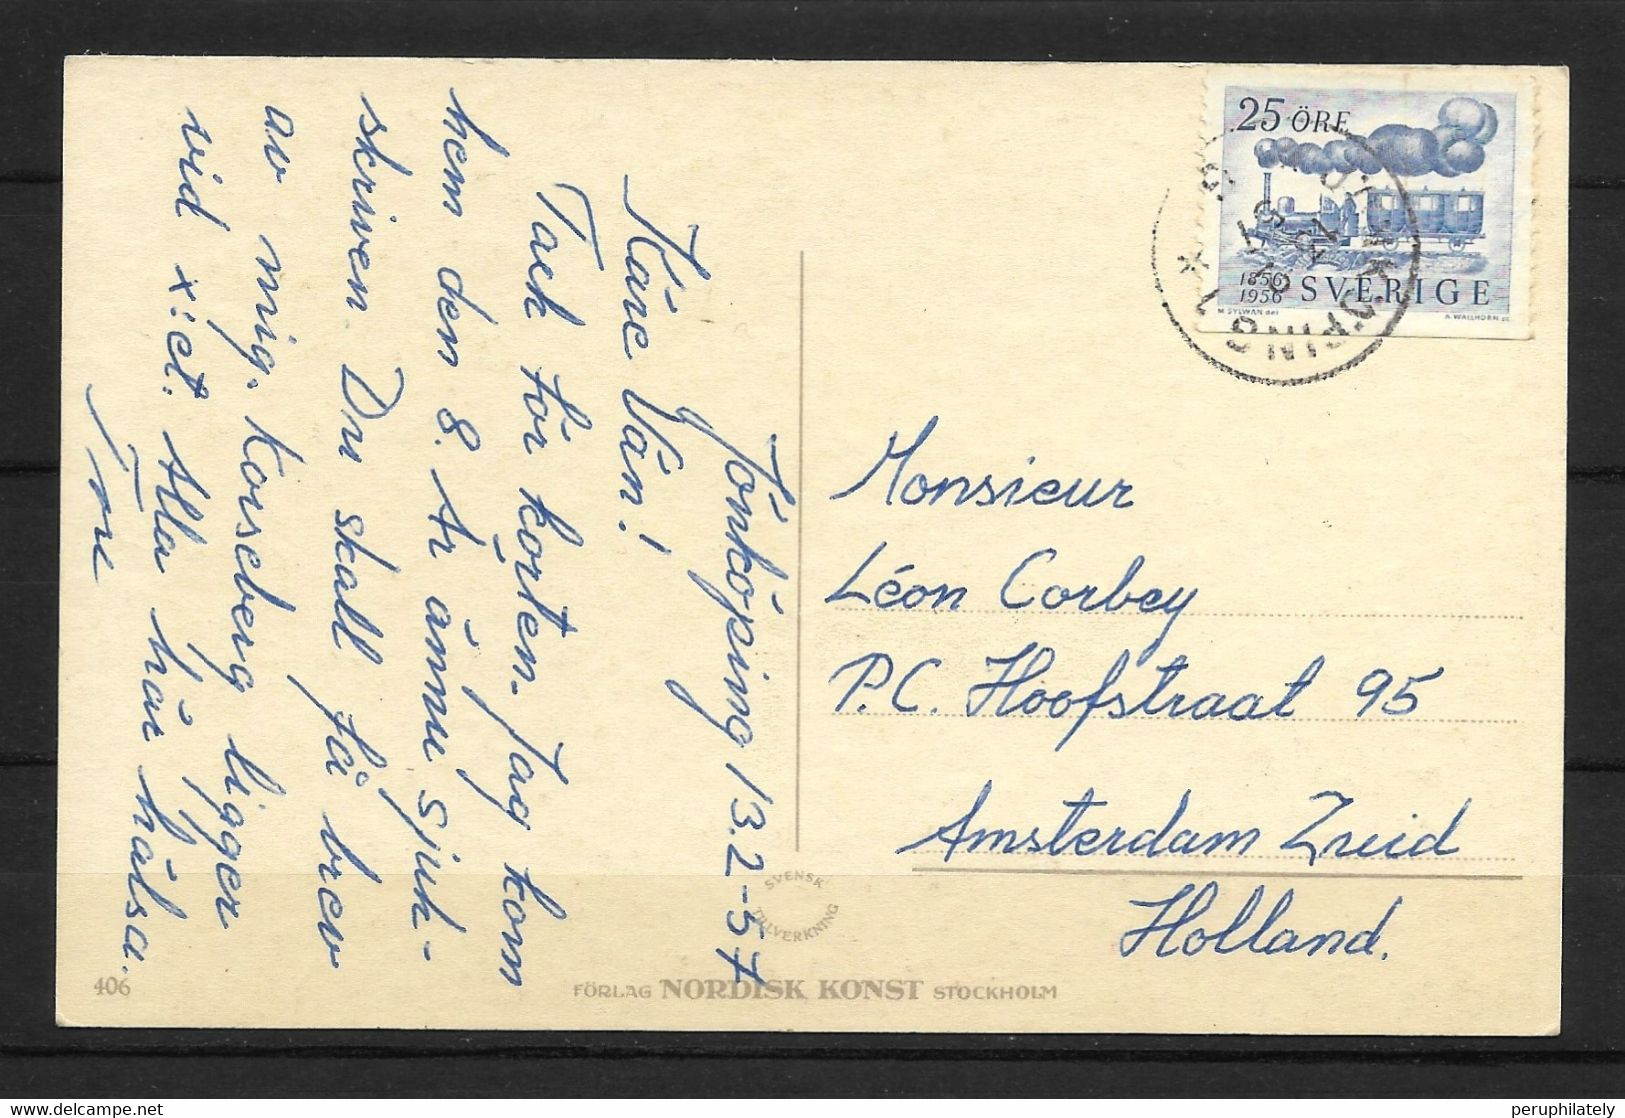 Jönköping 13.2-57
Käre Vän!
Tack för korten. Jag kom
hem den 8. Är ännu sjuk-
skriven. Du skall få brev
av mig. Korseberg ligger
vid x:et. Alla här hälsa.
Tore
25 ÖRE
1856
1956 SVERIGE
M SYLWAN del
A. WALLHORN sc
JÖNKÖPING 1
Monsieur
Léon Corbey
P.C. Hoofstraat 95
Amsterdam Zuid
Holland.
SVENSK
TILLVERKNING
406
FÖRLAG NORDISK KONST STOCKHOLM
peruphilately